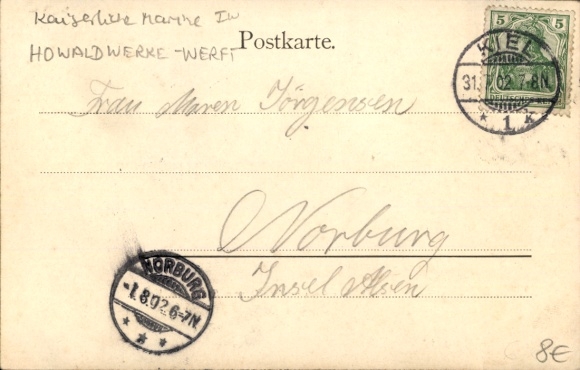 Kaiserliche Marine In
HOWALDWERKE-WERFT
Postkarte.
5 5
KIEL
31. 7.02.7-8N.
* 1 k
DEUTSCHES REICH
Frau Maren Jörgensen
Norburg
Insel Alsen
NORBURG
-1.8.02.6-7N
* * *
8€